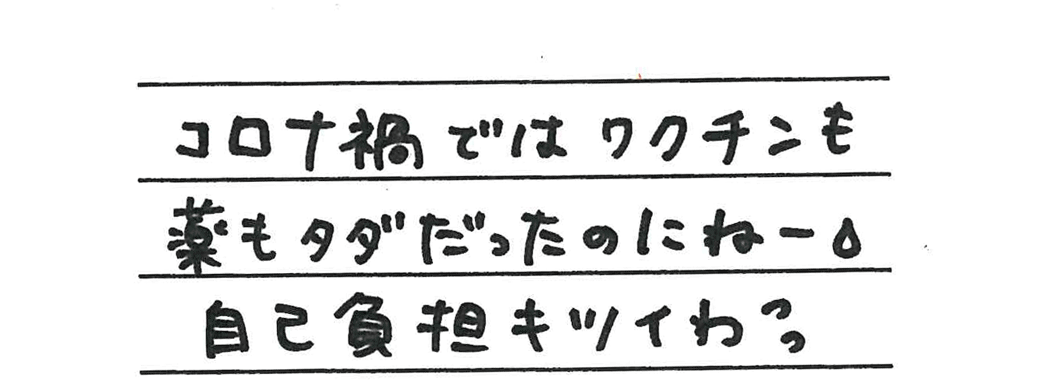 コロナ禍ではワクチンも
薬もタダだったのにねー💧
自己負担キツイわっっ